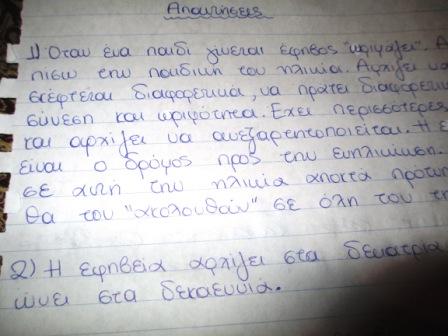 Απαντήσεις
1) Όταν ένα παιδί γίνεται έφηβος "ωριμάζει". Α
πίσω την παιδική του ηλικία. Αρχίζει να
σκέφτεται διαφορετικά, να πράττει διαφορετικ
σύνεση και ωριμότητα. Έχει περισσότερες
και αρχίζει να ανεξαρτητοποιείται. Η ε
είναι ο δρόμος προς την ενηλικίωση.
σε αυτή την ηλικία αποκτά πρότυπ
θα του "ακολουθούν" σε όλη του τη
2) Η εφηβεία αρχίζει στα δεκατρία
ώνει στα δεκαεννιά.